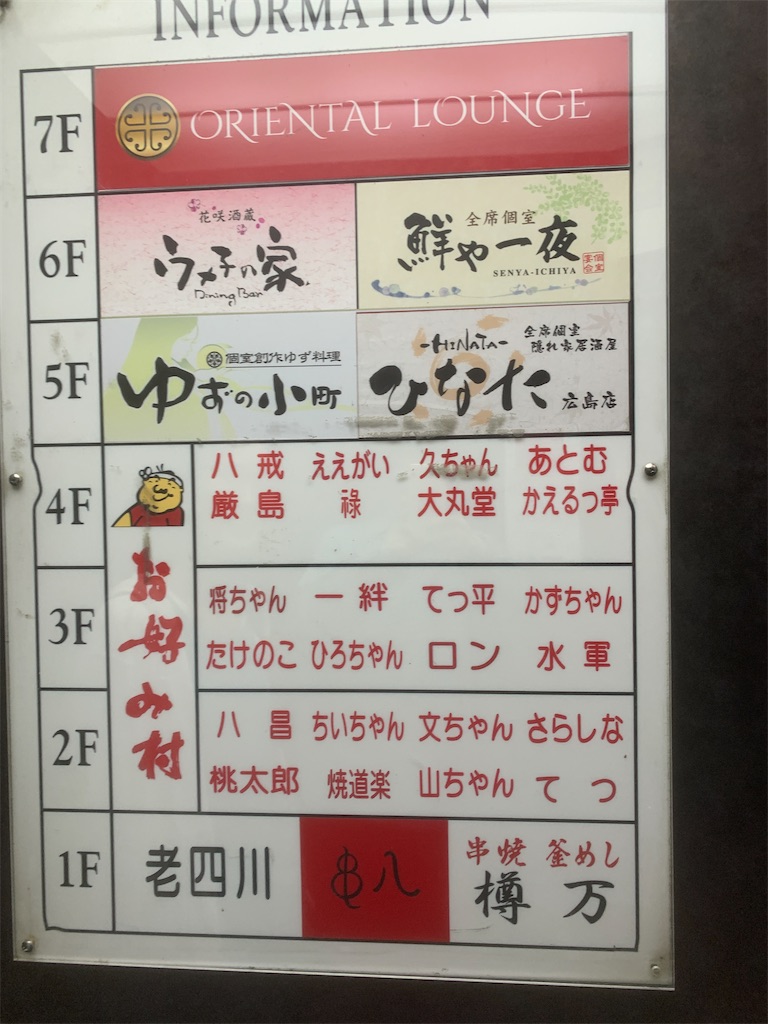 INFORMATION
7F
ORIENTAL LOUNGE
6F
花咲酒蔵
ウメ子の家
Dining Bar
全席個室
鮮や一夜
SENYA-ICHIYA
個室
宴会
5F
個室創作ゆず料理
ゆずの小町
-HINATA-
全席個室
隠れ家居酒屋
ひなた
広島店
4F
お好み村
八戒 ええがい 久ちゃん あとむ
厳島 祿 大丸堂 かえるっ亭
3F
将ちゃん 一絆 てっ平 かずちゃん
たけのこ ひろちゃん ロン 水軍
2F
八昌 ちいちゃん 文ちゃん さらしな
桃太郎 焼道楽 山ちゃん てつ
1F
老四川
八
串焼 釜めし
樽万